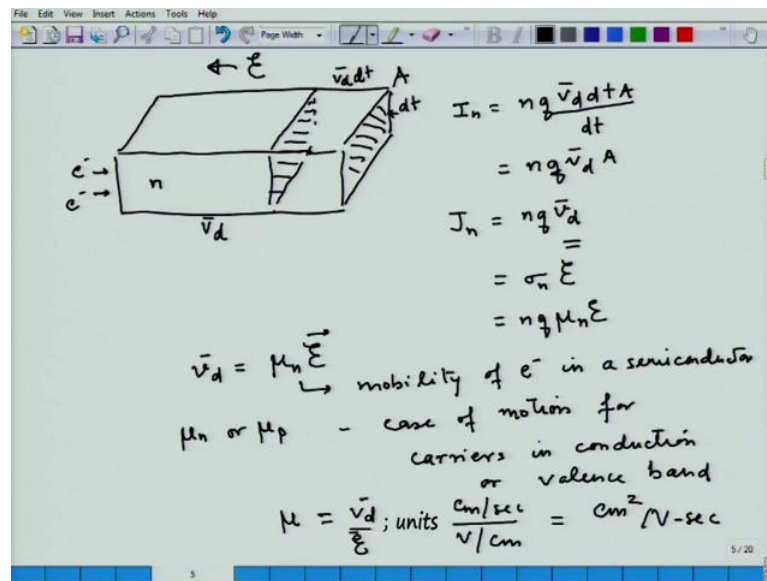 File Edit View Insert Actions Tools Help
Page Width
B I
← ℰ
v̄_d dt A
dt
e⁻ →
e⁻ →
n
v̄_d
I_n = nq v̄_d dt A / dt
= nq v̄_d A
J_n = nq v̄_d
= σ_n ℰ
= nq μ_n ℰ
v̄_d = μ_n ℰ
↳ mobility of e⁻ in a semiconductor
μ_n or μ_p - case of motion for
carriers in conduction
or valence band
μ = v̄_d / ℰ ; units cm/sec / V/cm = cm²/V-sec
5 / 20
5